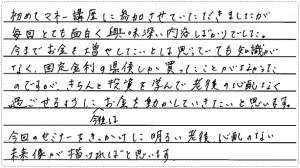 初めてマネー講座に参加させていただきましたが
毎回とても面白く興味深い内容ばかりでした。
今までお金を増やしたいとは思っていても知識が
なく、固定金利の県債しか買ったことがなかった
のですが、きちんと投資を学んで老後の心配なく
過ごせるようにお金を動かしていきたいと思います。
今回のセミナーをきっかけに明るい老後、心配のない
未来像が描ければと思います。